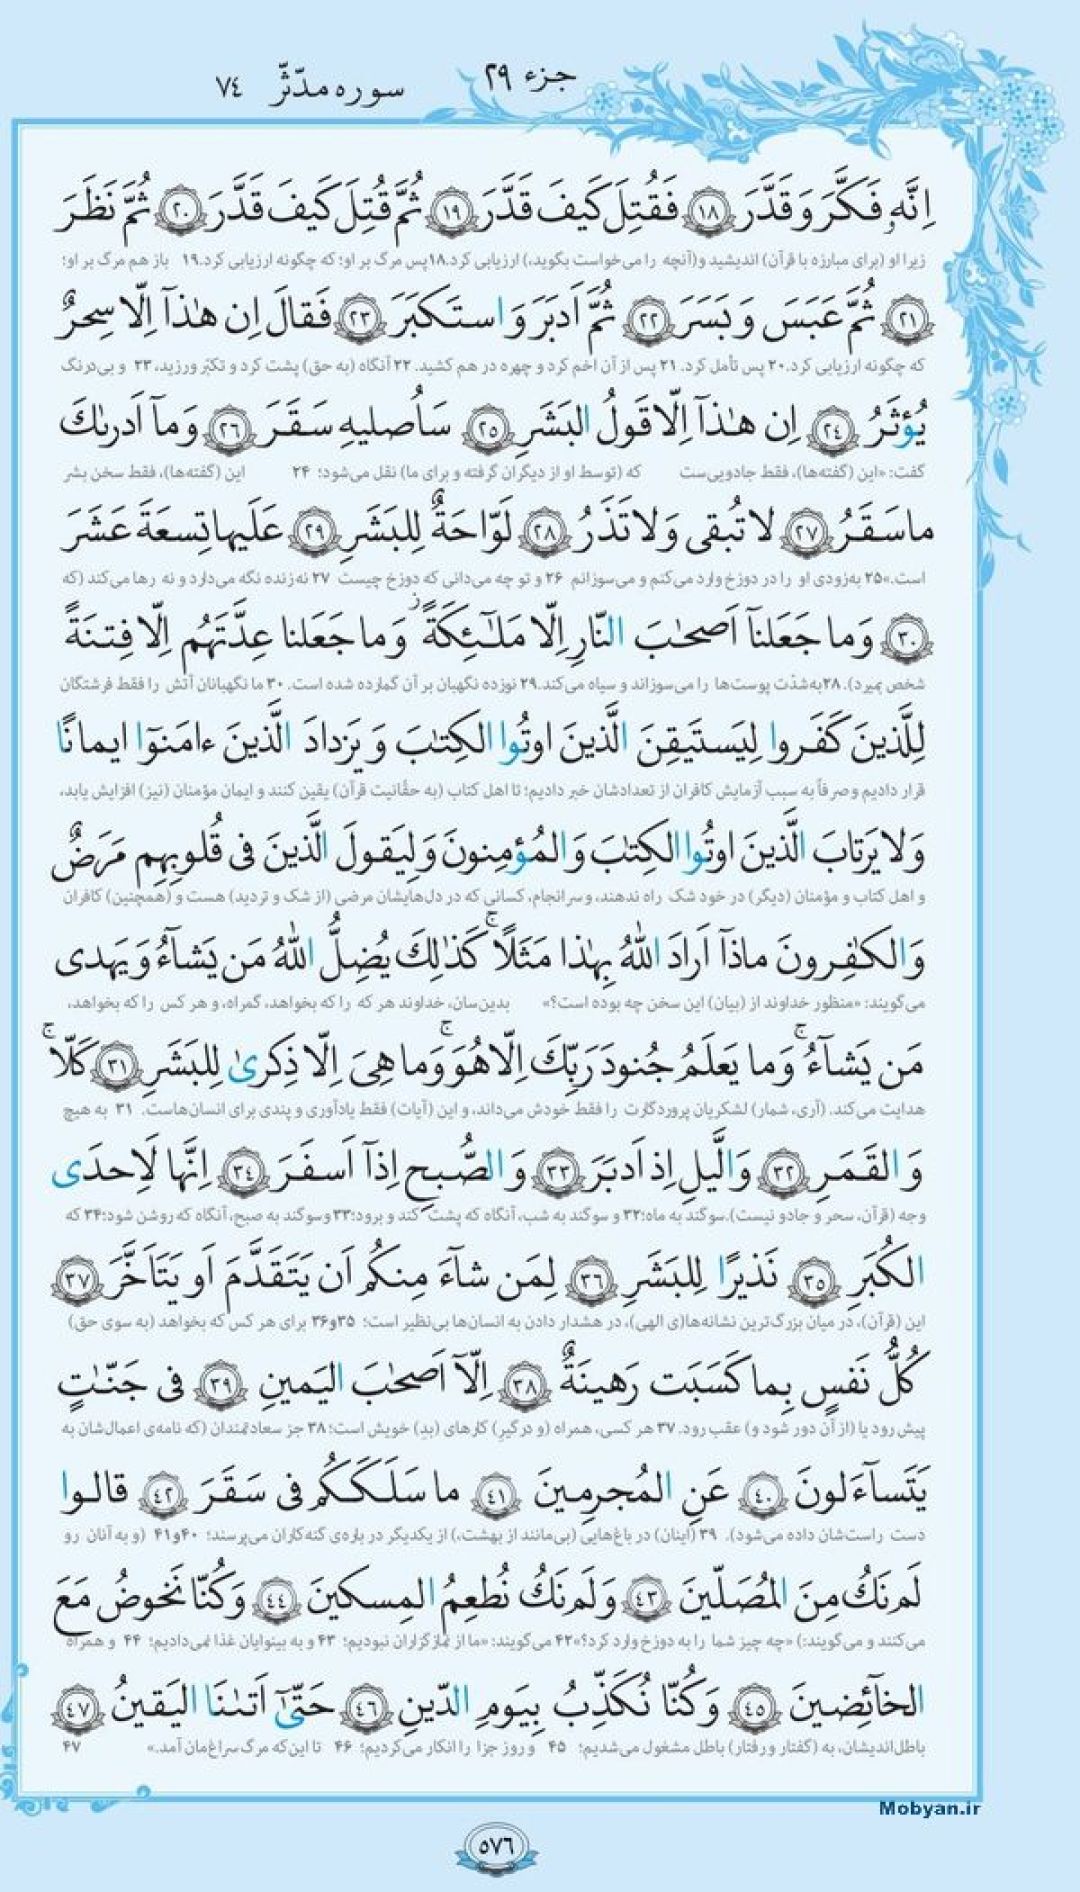 جزء ۲۹
سوره مدّثّر ۷٤
اِنَّهُ فَكَّرَ وَ قَدَّرَ ﴿١٨﴾ فَقُتِلَ كَيفَ قَدَّرَ ﴿١٩﴾ ثُمَّ قُتِلَ كَيفَ قَدَّرَ ﴿٢٠﴾ ثُمَّ نَظَرَ
زیرا او (برای مبارزه با قرآن) اندیشید و(آنچه را می‌خواست بگوید،) ارزیابی کرد.۱۸پس مرگ بر او؛ که چگونه ارزیابی کرد.۱۹ باز هم مرگ بر او؛
﴿٢١﴾ ثُمَّ عَبَسَ وَ بَسَرَ ﴿٢٢﴾ ثُمَّ اَدبَرَ وَاستَكبَرَ ﴿٢٣﴾ فَقالَ اِن هٰذآ اِلّا سِحرٌ
که چگونه ارزیابی کرد.۲۰ پس تأمل کرد. ۲۱ پس از آن اخم کرد و چهره در هم کشید. ۲۲ آنگاه (به حق) پشت کرد و تکبّر ورزید، ۲۳ و بی‌درنگ
يُؤثَرُ ﴿٢٤﴾ اِن هٰذآ اِلّا قَولُ البَشَرِ ﴿٢٥﴾ سَاُصليهِ سَقَرَ ﴿٢٦﴾ وَمآ اَدرىٰكَ
گفت: «این (گفته‌ها)، فقط جادویی‌ست که (توسط او از دیگران گرفته و برای ما) نقل می‌شود؛ ۲۴ این (گفته‌ها)، فقط سخن بشر
ما سَقَرُ ﴿٢٧﴾ لا تُبقى وَلا تَذَرُ ﴿٢٨﴾ لَوّاحَةٌ لِلبَشَرِ ﴿٢٩﴾ عَلَيها تِسعَةَ عَشَرَ
است.»۲۵ به‌زودی او را در دوزخ وارد می‌کنم و می‌سوزانم ۲۶ و تو چه می‌دانی که دوزخ چیست ۲۷ نه زنده نگه می‌دارد و نه رها می‌کند (که
﴿٣٠﴾ وَما جَعَلنآ اَصحٰبَ النّارِ اِلّا مَلٰٓئِكَةً ۙ وَما جَعَلنا عِدَّتَهُم اِلّا فِتنَةً
شخص بمیرد). ۲۸به‌شدّت پوست‌ها را می‌سوزاند و سیاه می‌کند.۲۹ نوزده نگهبان بر آن گمارده شده است. ۳۰ ما نگهبانان آتش را فقط فرشتگان
لِلَّذينَ كَفَروا لِيَستَيقِنَ الَّذينَ اوتُوا الكِتٰبَ وَ يَزدادَ الَّذينَ ءامَنوٓا ايمانًا
قرار دادیم و صرفاً به سبب آزمایش کافران از تعدادشان خبر دادیم؛ تا اهل کتاب (به حقّانیت قرآن) یقین کنند و ایمان مؤمنان (نیز) افزایش یابد،
وَلا يَرتابَ الَّذينَ اوتُوا الكِتٰبَ وَالمُؤمِنونَ وَلِيَقولَ الَّذينَ فى قُلوبِهِم مَرَضٌ
و اهل کتاب و مؤمنان (دیگر) در خود شک راه ندهند، و سرانجام، کسانی که در دل‌هایشان مرضی (از شک و تردید) هست و (همچنین) کافران
وَالكٰفِرونَ ماذآ اَرادَ اللهُ بِهٰذا مَثَلًا ۚ كَذٰلِكَ يُضِلُّ اللهُ مَن يَشآءُ وَ يَهدى
می‌گویند: «منظور خداوند از (بیان) این سخن چه بوده است؟» بدین‌سان، خداوند هر که را که بخواهد، گمراه، و هر کس را که بخواهد،
مَن يَشآءُ ۚ وَما يَعلَمُ جُنودَ رَبِّكَ اِلّا هُوَ ۚ وَما هِىَ اِلّا ذِكرىٰ لِلبَشَرِ ﴿٣١﴾ كَلّا ۚ
هدایت می‌کند. (آری، شمار) لشکریان پروردگارت را فقط خودش می‌داند، و این (آیات) فقط یادآوری و پندی برای انسان‌هاست. ۳۱ به هیچ
وَالقَمَرِ ﴿٣٢﴾ وَالَّيلِ اِذ اَدبَرَ ﴿٣٣﴾ وَالصُّبحِ اِذآ اَسفَرَ ﴿٣٤﴾ اِنَّها لَاِحدَى
وجه (قرآن، سحر و جادو نیست). سوگند به ماه؛۳۲ و سوگند به شب، آنگاه که پشت کند و برود؛۳۳ و سوگند به صبح، آنگاه که روشن شود؛۳۴ که
الكُبَرِ ﴿٣٥﴾ نَذيرًا لِلبَشَرِ ﴿٣٦﴾ لِمَن شآءَ مِنكُم اَن يَتَقَدَّمَ اَو يَتَاَخَّرَ ﴿٣٧﴾
این (قرآن)، در میان بزرگ‌ترین نشانه‌ها(ی الهی)، در هشدار دادن به انسان‌ها بی‌نظیر است؛ ۳۵و۳۶ برای هر کس که بخواهد (به سوی حق)
كُلُّ نَفسٍ بِما كَسَبَت رَهينَةٌ ﴿٣٨﴾ اِلّآ اَصحٰبَ اليَمينِ ﴿٣٩﴾ فى جَنّٰتٍ
پیش رود یا (از آن دور شود و) عقب رود. ۳۷ هر کسی، همراه (و درگیر) کارهای (بد) خویش است؛ ۳۸ جز سعادتمندان (که نامه‌ی اعمال‌شان به
يَتَسآءَلونَ ﴿٤٠﴾ عَنِ المُجرِمينَ ﴿٤١﴾ ما سَلَكَكُم فى سَقَرَ ﴿٤٢﴾ قالوا
دست راست‌شان داده می‌شود). ۳۹ (اینان) در باغ‌هایی (بی‌مانند از بهشت،) از یکدیگر در باره‌ی گنه‌کاران می‌پرسند؛ ۴۰و۴۱ (و به آنان رو
لَم نَكُ مِنَ المُصَلّينَ ﴿٤٣﴾ وَلَم نَكُ نُطعِمُ المِسكينَ ﴿٤٤﴾ وَكُنّا نَخوضُ مَعَ
می‌کنند و می‌گویند:) «چه چیز شما را به دوزخ وارد کرد؟»۴۲ می‌گویند: «ما از نمازگزاران نبودیم؛ ۴۳ و به بینوایان غذا نمی‌دادیم؛ ۴۴ و همراه
الخآئِضينَ ﴿٤٥﴾ وَكُنّا نُكَذِّبُ بِيَومِ الدّينِ ﴿٤٦﴾ حَتّىٰٓ اَتىٰنَا اليَقينُ ﴿٤٧﴾
باطل‌اندیشان، به (گفتار و رفتار) باطل مشغول می‌شدیم؛ ۴۵ و روز جزا را انکار می‌کردیم؛ ۴۶ تا این‌که مرگ سراغ‌مان آمد.» ۴۷
Mobyan.ir
۵۷۶